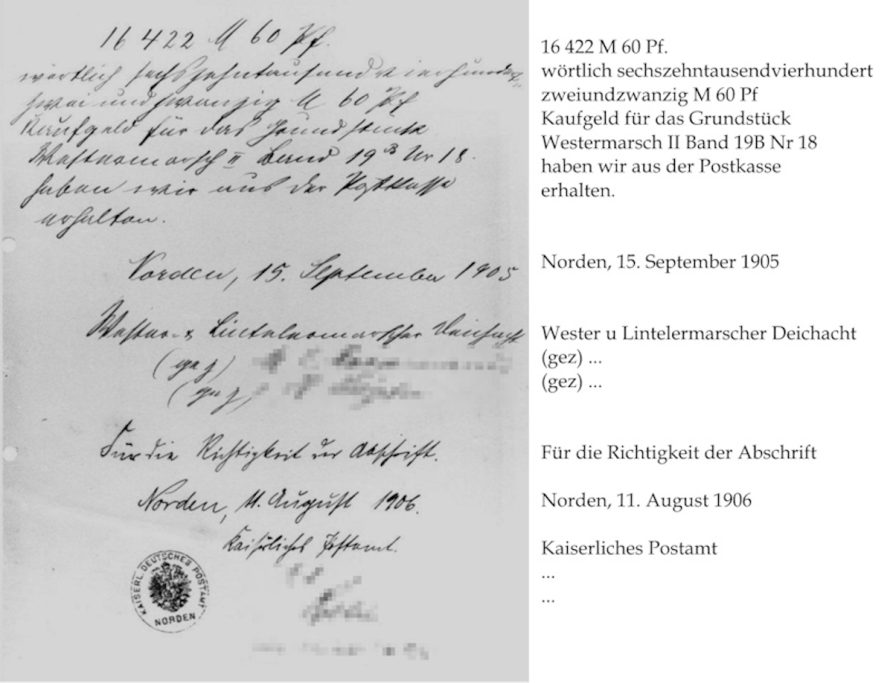 16 422 M 60 Pf.
wörtlich sechszehntausendvierhundert
zwei und zwanzig M 60 Pf
Kaufgeld für das Grundstück
Westermarsch II Band 19B Nr 18
haben wir aus der Postkasse
erhalten.
Norden, 15. September 1905
Wester u Lintelermarscher Deichacht
(gez)
(gez)
Für die Richtigkeit der Abschrift.
Norden, 11. August 1906.
Kaiserliches Postamt.
KAISERL. DEUTSCHES POSTAMT
NORDEN
16 422 M 60 Pf.
wörtlich sechszehntausendvierhundert
zweiundzwanzig M 60 Pf
Kaufgeld für das Grundstück
Westermarsch II Band 19B Nr 18
haben wir aus der Postkasse
erhalten.
Norden, 15. September 1905
Wester u Lintelermarscher Deichacht
(gez) ...
(gez) ...
Für die Richtigkeit der Abschrift
Norden, 11. August 1906
Kaiserliches Postamt
...
...